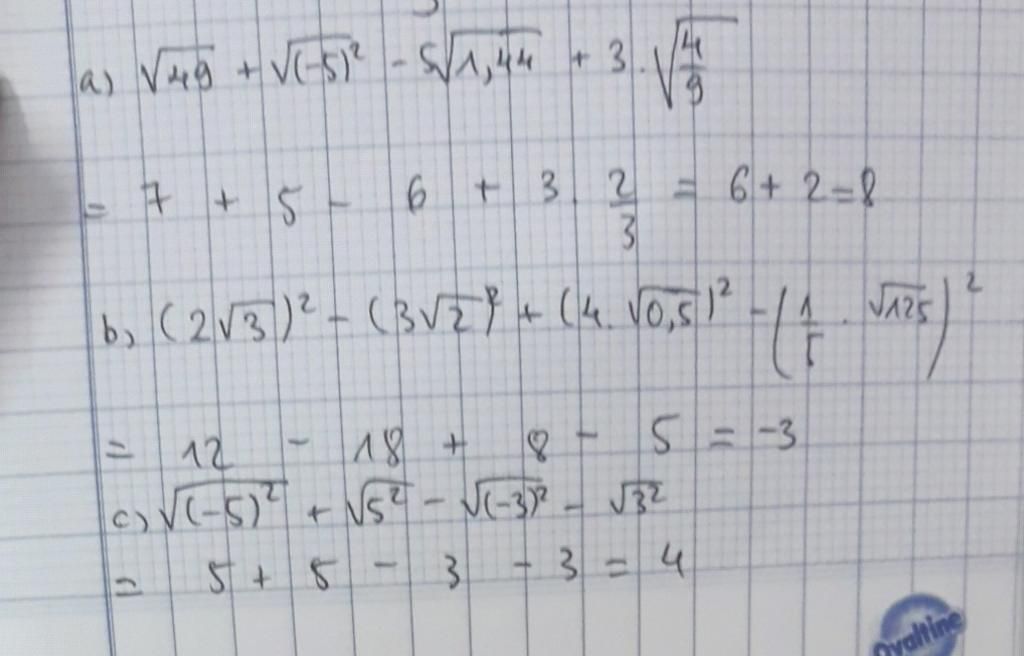 a) √49 + √(-5)² - 5√1,44 + 3.√(4/9)
= 7 + 5 - 6 + 3.2/3 = 6 + 2 = 8
b) (2√3)² - (3√2)² + (4.√0,5)² - (1/5 . √125)²
= 12 - 18 + 8 - 5 = -3
c) √(-5)² + √5² - √(-3)² - √3²
= 5 + 5 - 3 - 3 = 4
Ovaltine